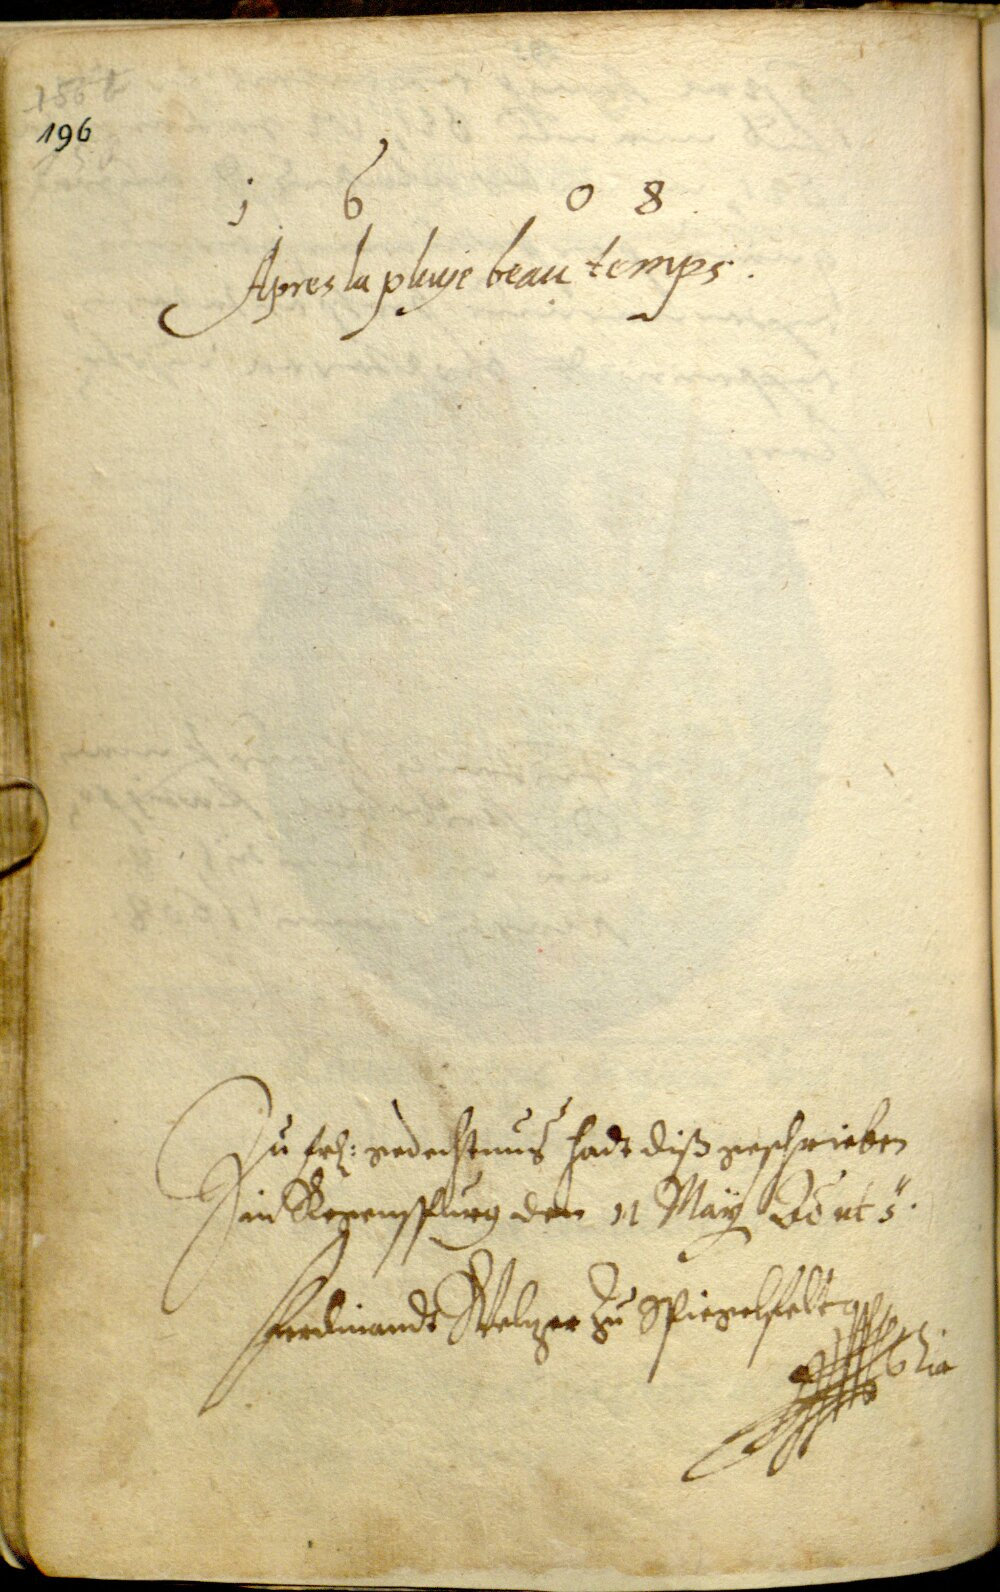 196
1 6 0 8
Apres la pluye beau temps.
Zu frh: gedechtnus hadt diß geschrieben
in Regenspurg den 11 Maÿ Aõ ut s.
Ferdinandt Welzer zu Spiegelfeldt